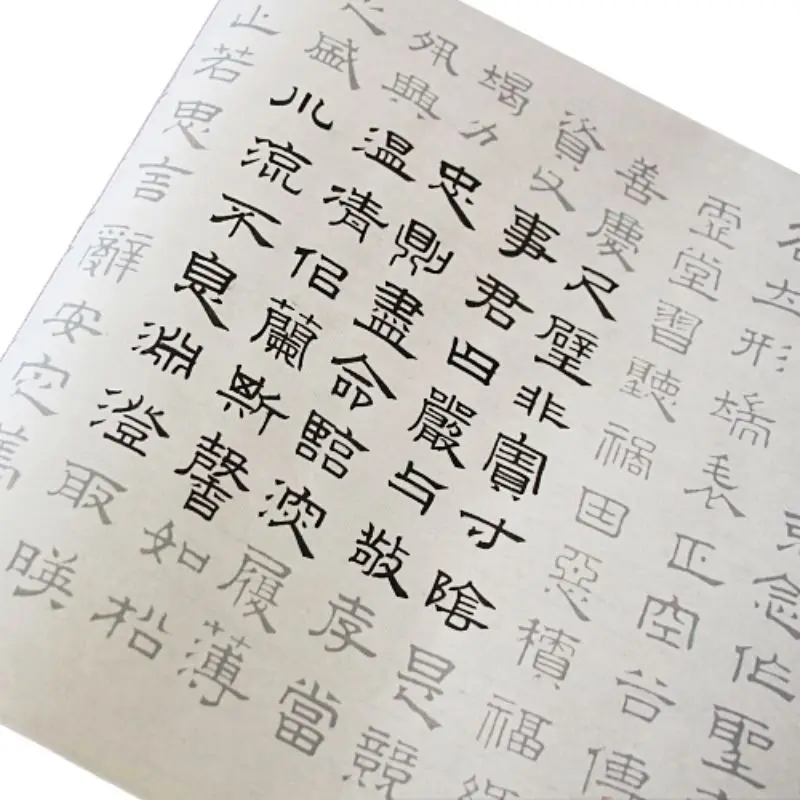 念作聖
名立形端表正空谷傳
虛堂習聽禍因惡積福緣
善慶尺璧非寶寸陰是競
資父事君曰嚴与敬孝當
竭力忠則盡命臨深履薄
夙興溫清佀蘭斯馨如松
之盛川流不息淵澄取暎
止若思言辭安定篤